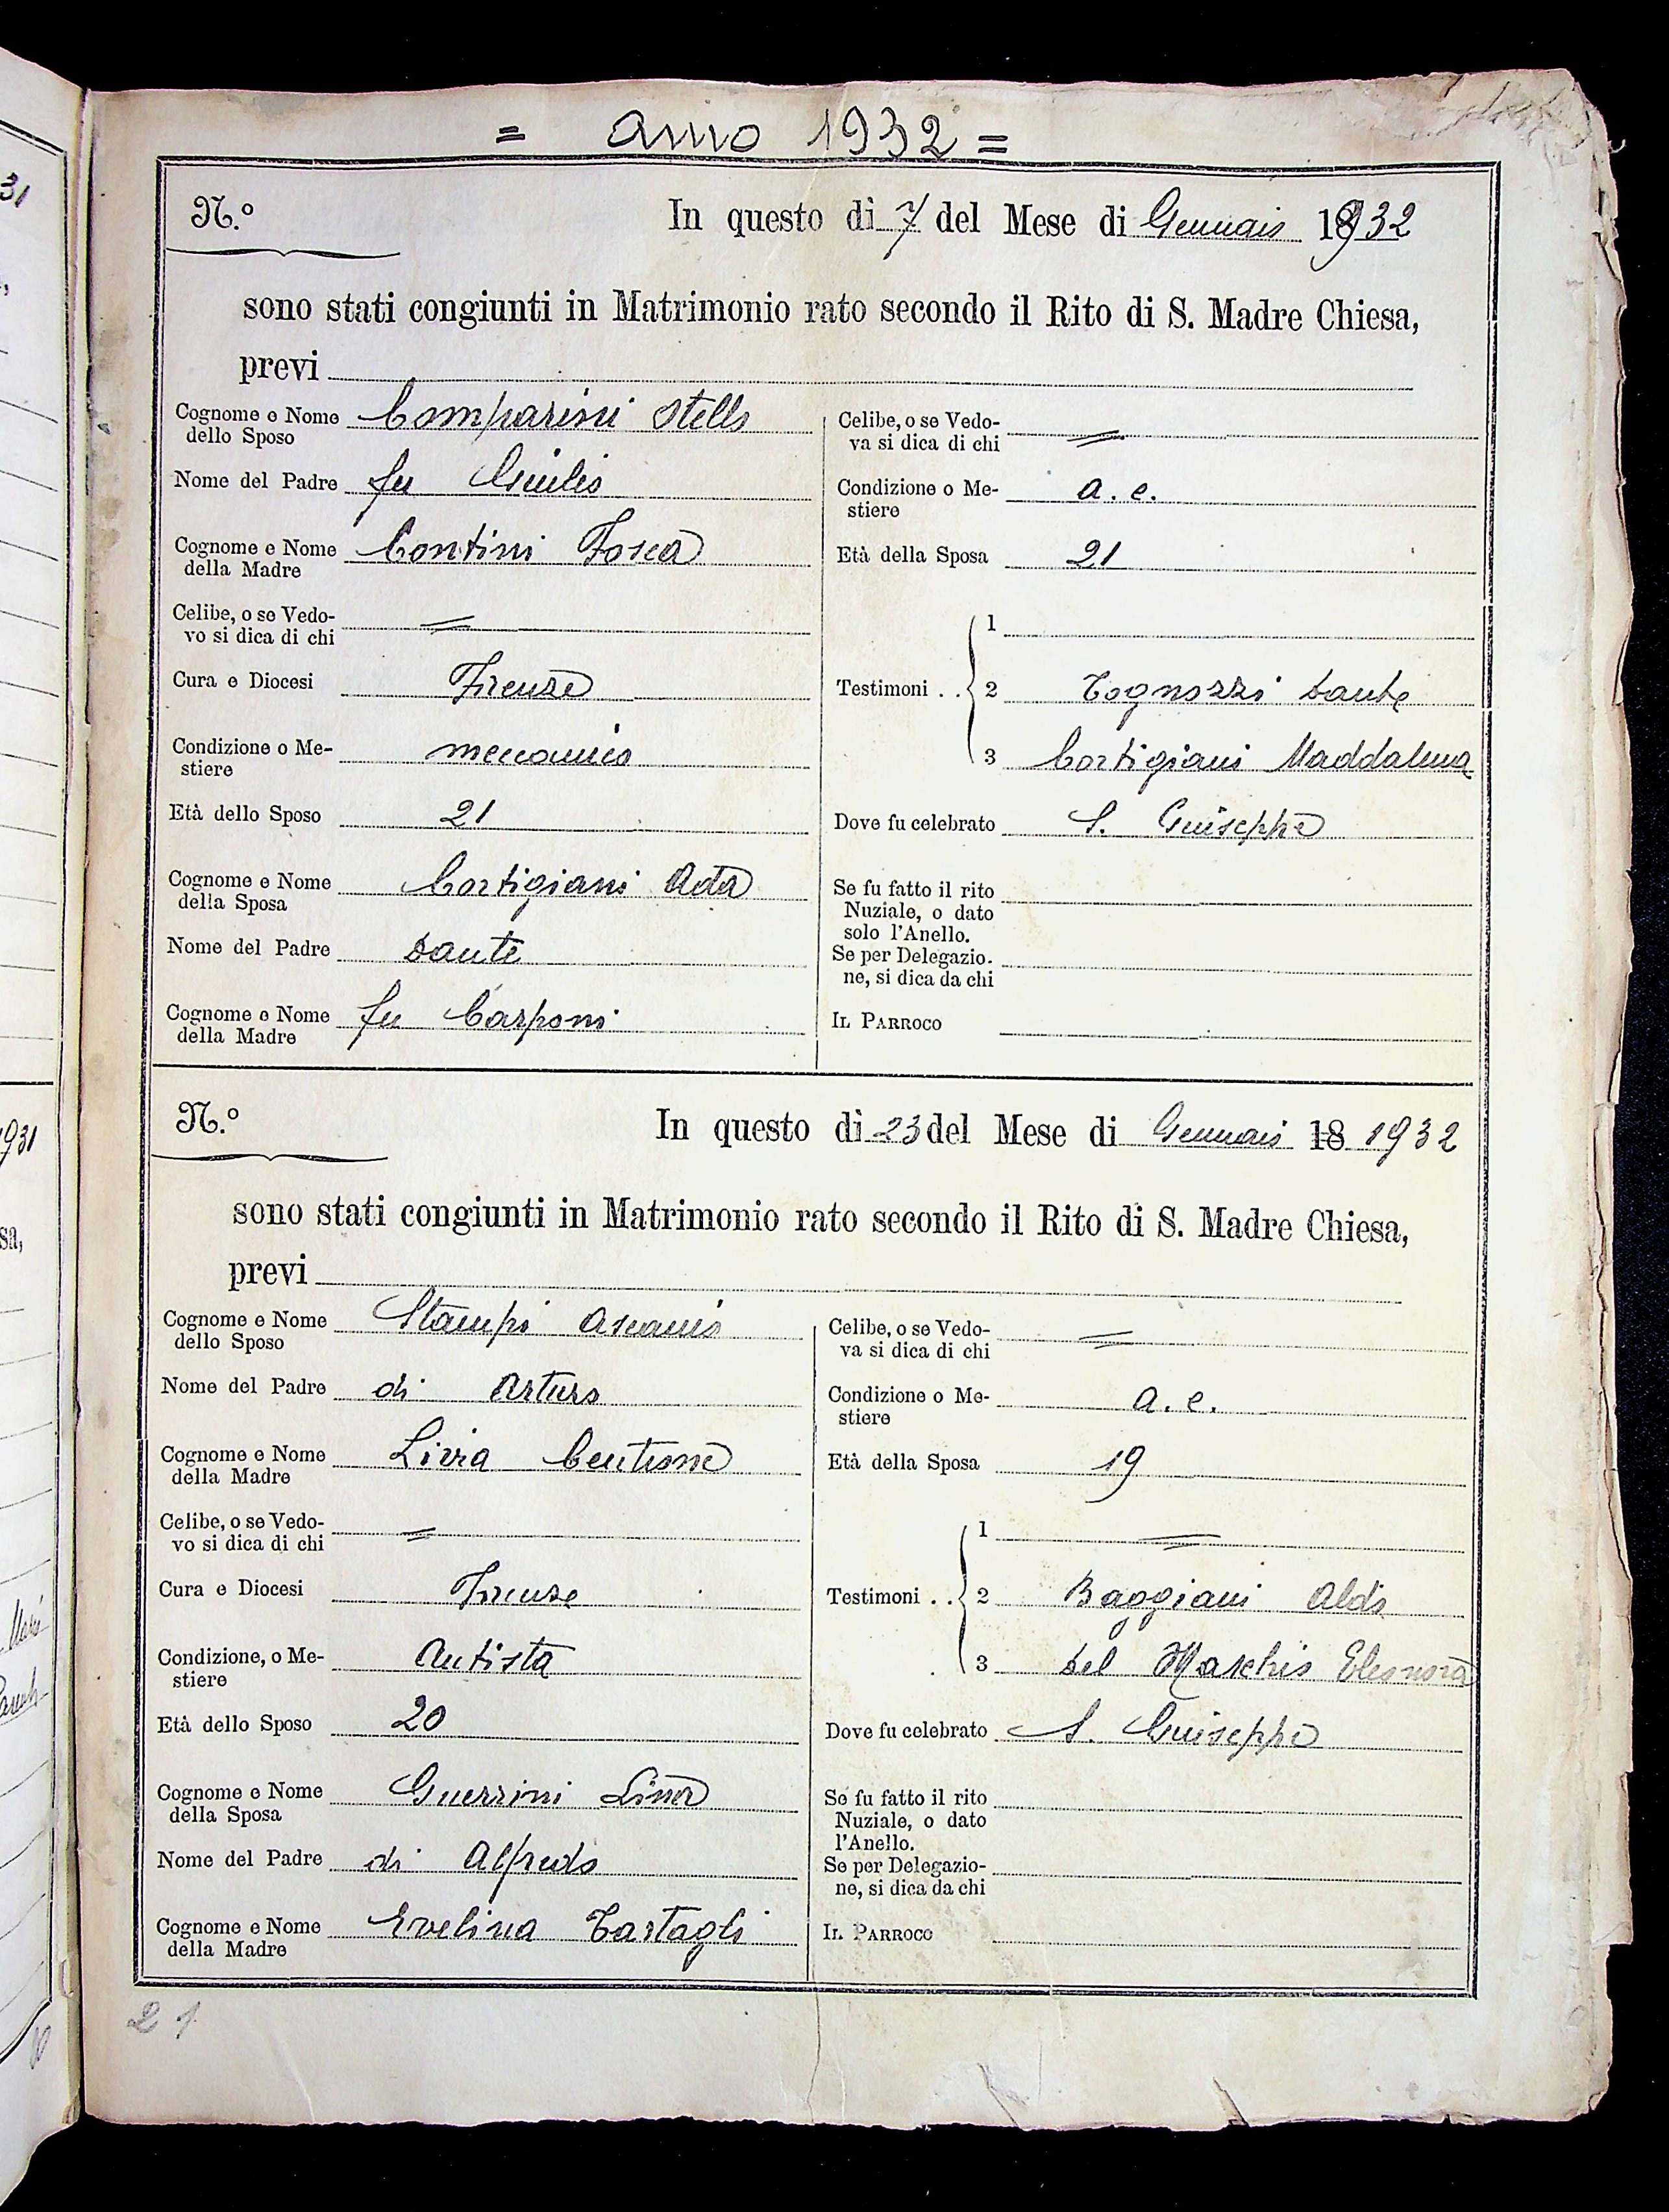 = Anno 1932 =
N.º
In questo dì 7 del Mese di Gennaio 1932
sono stati congiunti in Matrimonio rato secondo il Rito di S. Madre Chiesa,
previ
Cognome e Nome dello Sposo Comparini Otello
Nome del Padre fu Giulio
Cognome e Nome della Madre Contini Tosca
Celibe, o se Vedovo si dica di chi =
Cura e Diocesi Firenze
Condizione o Mestiere meccanico
Età dello Sposo 21
Cognome e Nome della Sposa Cortigiani Ada
Nome del Padre Dante
Cognome e Nome della Madre fu Carponi
Celibe, o se Vedova si dica di chi =
Condizione o Mestiere a. c.
Età della Sposa 21
Testimoni . . 1
2 Tognozzi Dante
3 Cortigiani Maddalena
Dove fu celebrato S. Giuseppe
Se fu fatto il rito Nuziale, o dato solo l'Anello.
Se per Delegazione, si dica da chi
IL PARROCO
N.º
In questo dì 23 del Mese di Gennaio 18 1932
sono stati congiunti in Matrimonio rato secondo il Rito di S. Madre Chiesa,
previ
Cognome e Nome dello Sposo Stampi Ascanio
Nome del Padre di Arturo
Cognome e Nome della Madre Livia
Celibe, o se Vedovo si dica di chi =
Cura e Diocesi Firenze
Condizione, o Mestiere Autista
Età dello Sposo 20
Cognome e Nome della Sposa Guerrini Lina
Nome del Padre di Alfredo
Cognome e Nome della Madre Evelina Tartagli
Celibe, o se Vedova si dica di chi =
Condizione o Mestiere a. c.
Età della Sposa 19
Testimoni . . 1 =
2 Baggiani Aldo
3 Del Maschio Eleonora
Dove fu celebrato S. Giuseppe
Se fu fatto il rito Nuziale, o dato l'Anello.
Se per Delegazione, si dica da chi
IL PARROCO
21